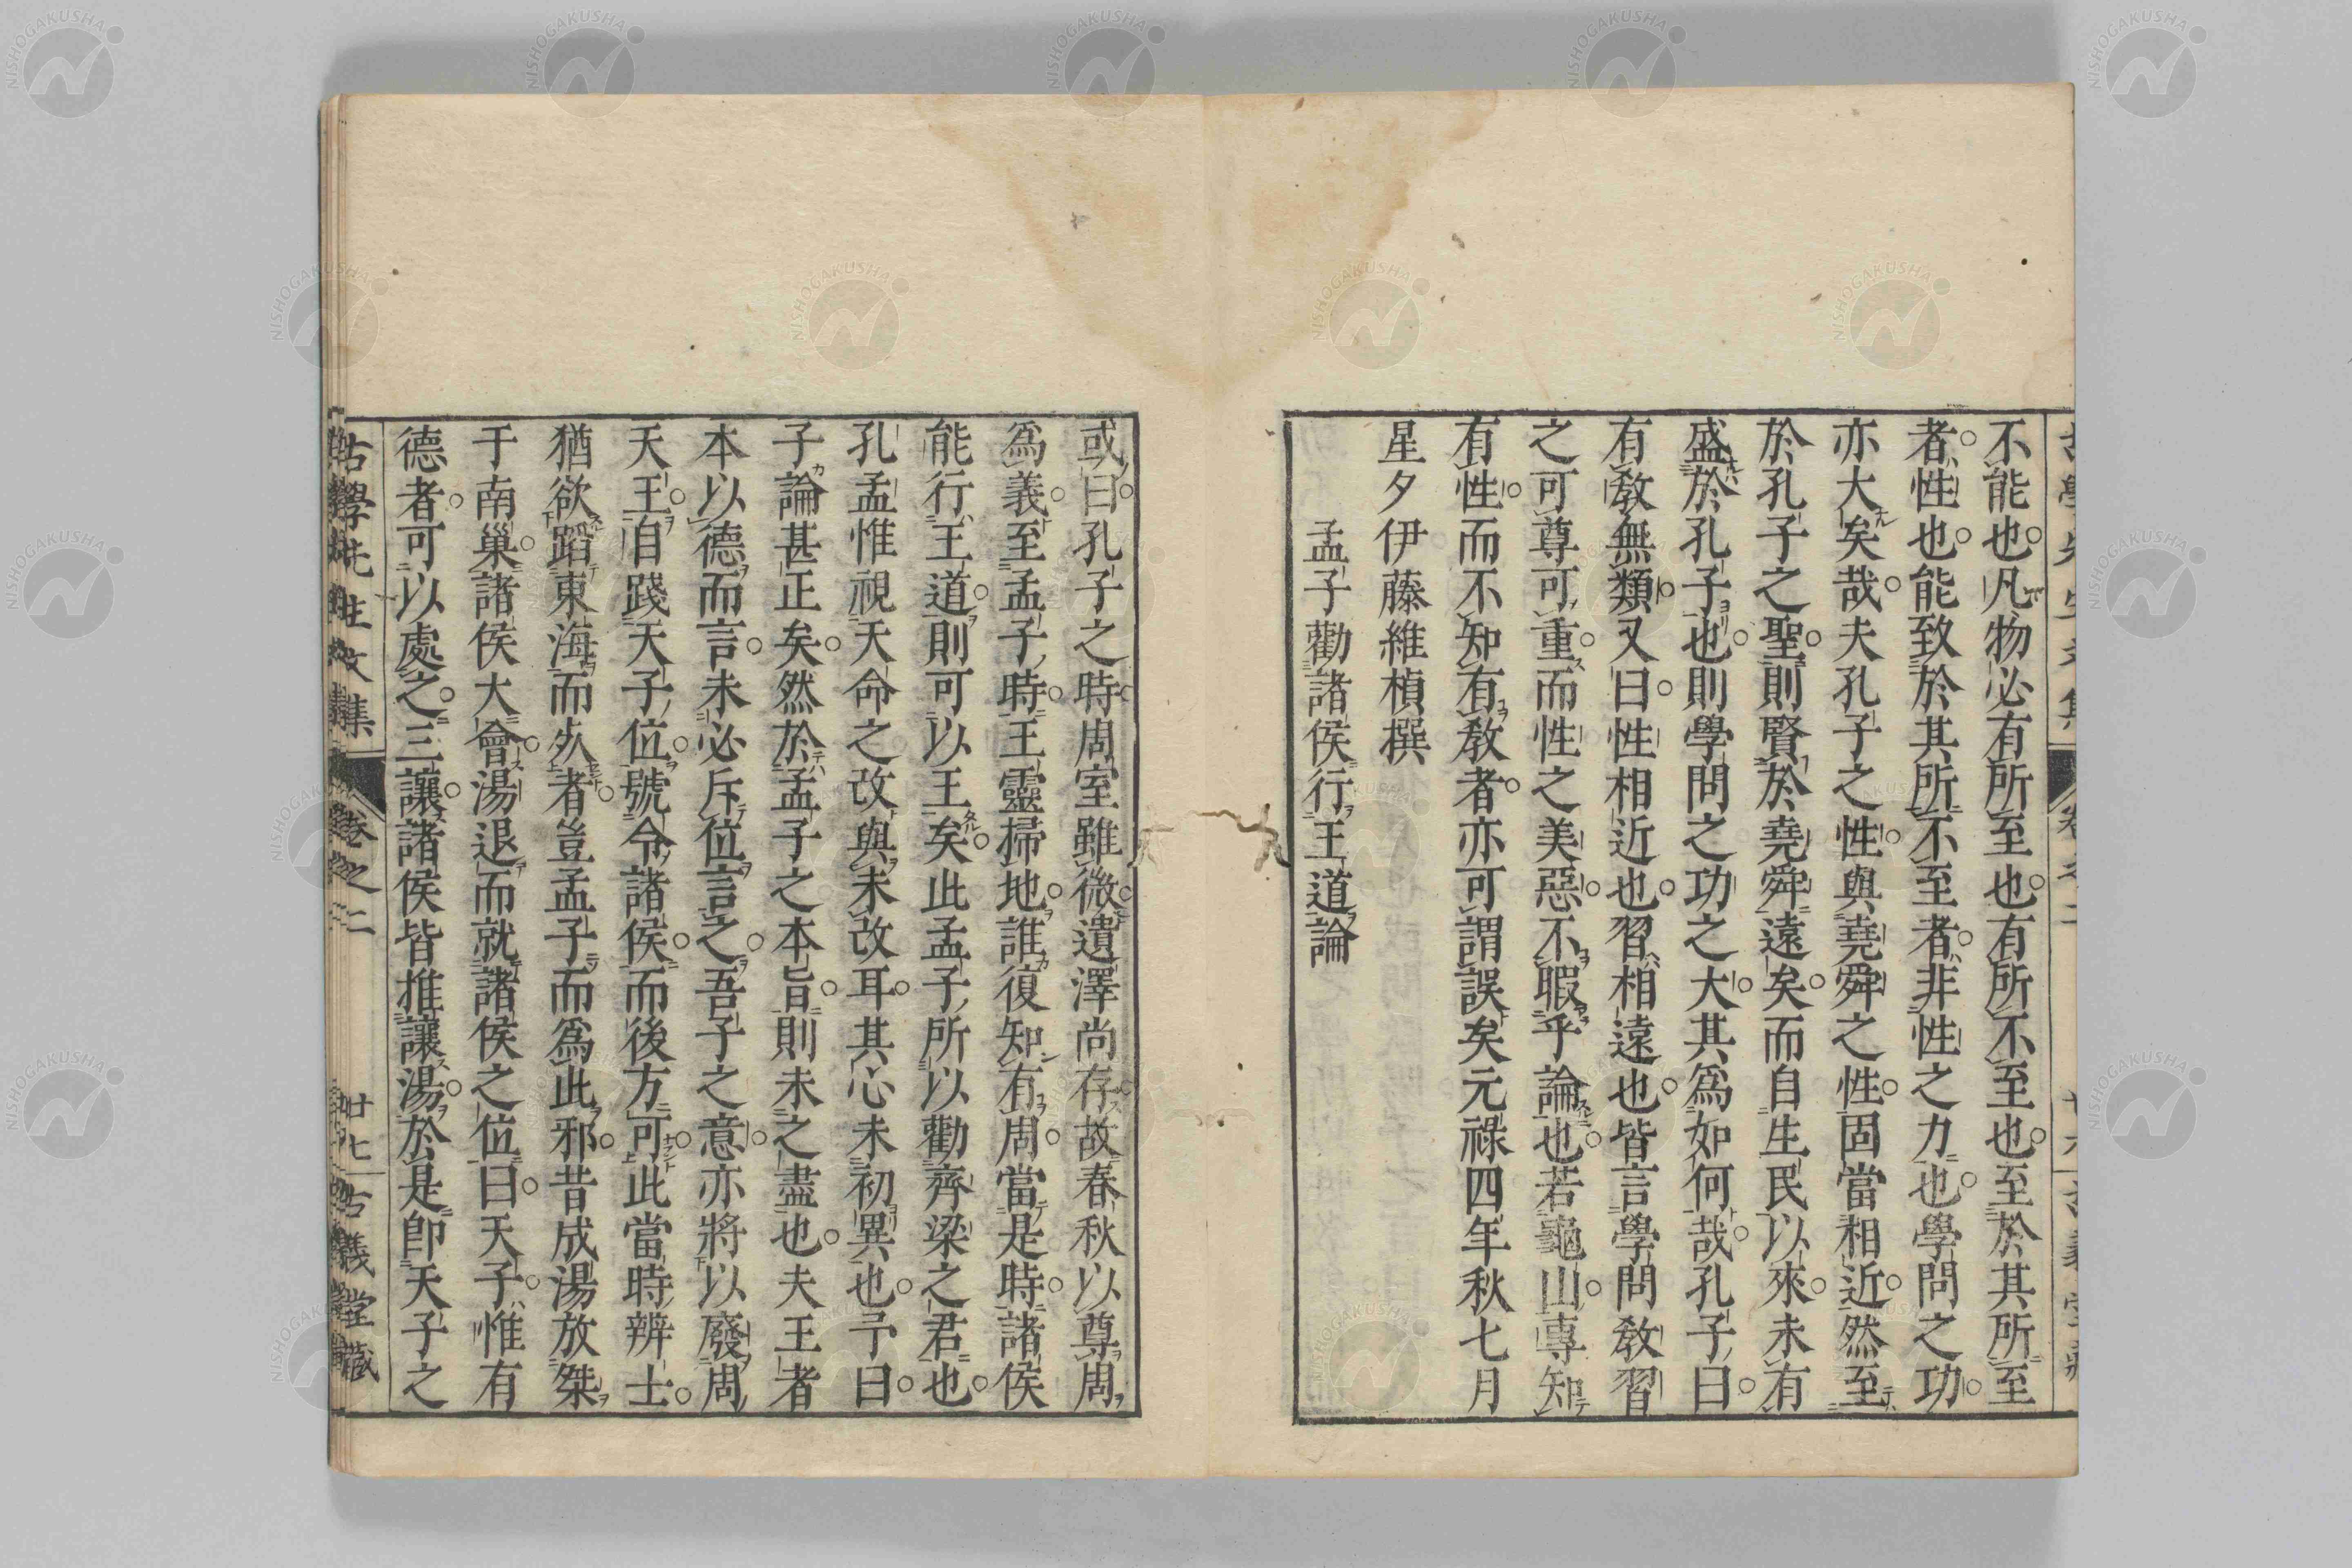 不能也。凡物必有所至也。有所不至也。至於其所至
者。性也。能致於其所不至者。非性之力也。學問之功
亦大矣哉。夫孔子之性。與堯舜之性。固當相近。然至
於孔子之聖。則賢於堯舜遠矣。而自生民以來。未有
盛於孔子也。則學問之功之大。其爲如何哉。孔子曰。
有教無類。又曰。性相近也。習相遠也。皆言學問教習
之可尊可重。而性之美惡。不暇乎論也。若龜山。專知
有性。而不知有教者。亦可謂誤矣。元祿四年秋七月
星夕伊藤維楨撰
孟子勸諸侯行王道論
或曰。孔子之時。周室雖微。遺澤尚存。故春秋以尊周
爲義。至孟子時。王靈掃地。誰復知有周。當是時。諸侯
能行王道。則可以王矣。此孟子所以勸齊梁之君也。
孔孟惟視天命之改與未改耳。其心未初異也。予曰。
子論甚正矣。然於孟子之本旨。則未之盡也。夫王者
本以德而言。未必斥位言之。吾子之意。亦將以廢周
天王。自踐天子位。號令諸侯。而後方可。此當時辨士。
猶欲蹈東海而死者。豈孟子而爲此邪。昔成湯放桀
于南巢。諸侯大會。湯退而就諸侯之位。曰。天子。惟有
德者。可以處之。三讓。諸侯皆推讓湯。於是即天子之
古學先生文集 卷之二 廿七 古義堂藏